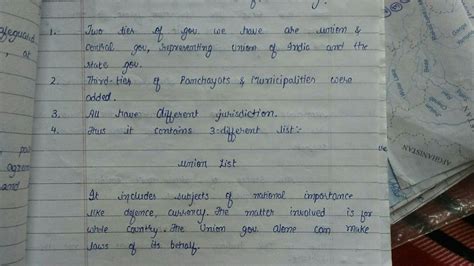 1. Two ties of gov. we have are union &
central gov, representing union of India and the
state gov.
2. Third-ties of Panchayats & Municipalities were
added.
3. All have Different jurisdiction.
4. Thus it contains 3-different list:
Union List
It includes subjects of national importance
like defence, currency. The matter involved is for
whole country. The Union gov alone can make
laws of its behalf.
AFGHANISTAN